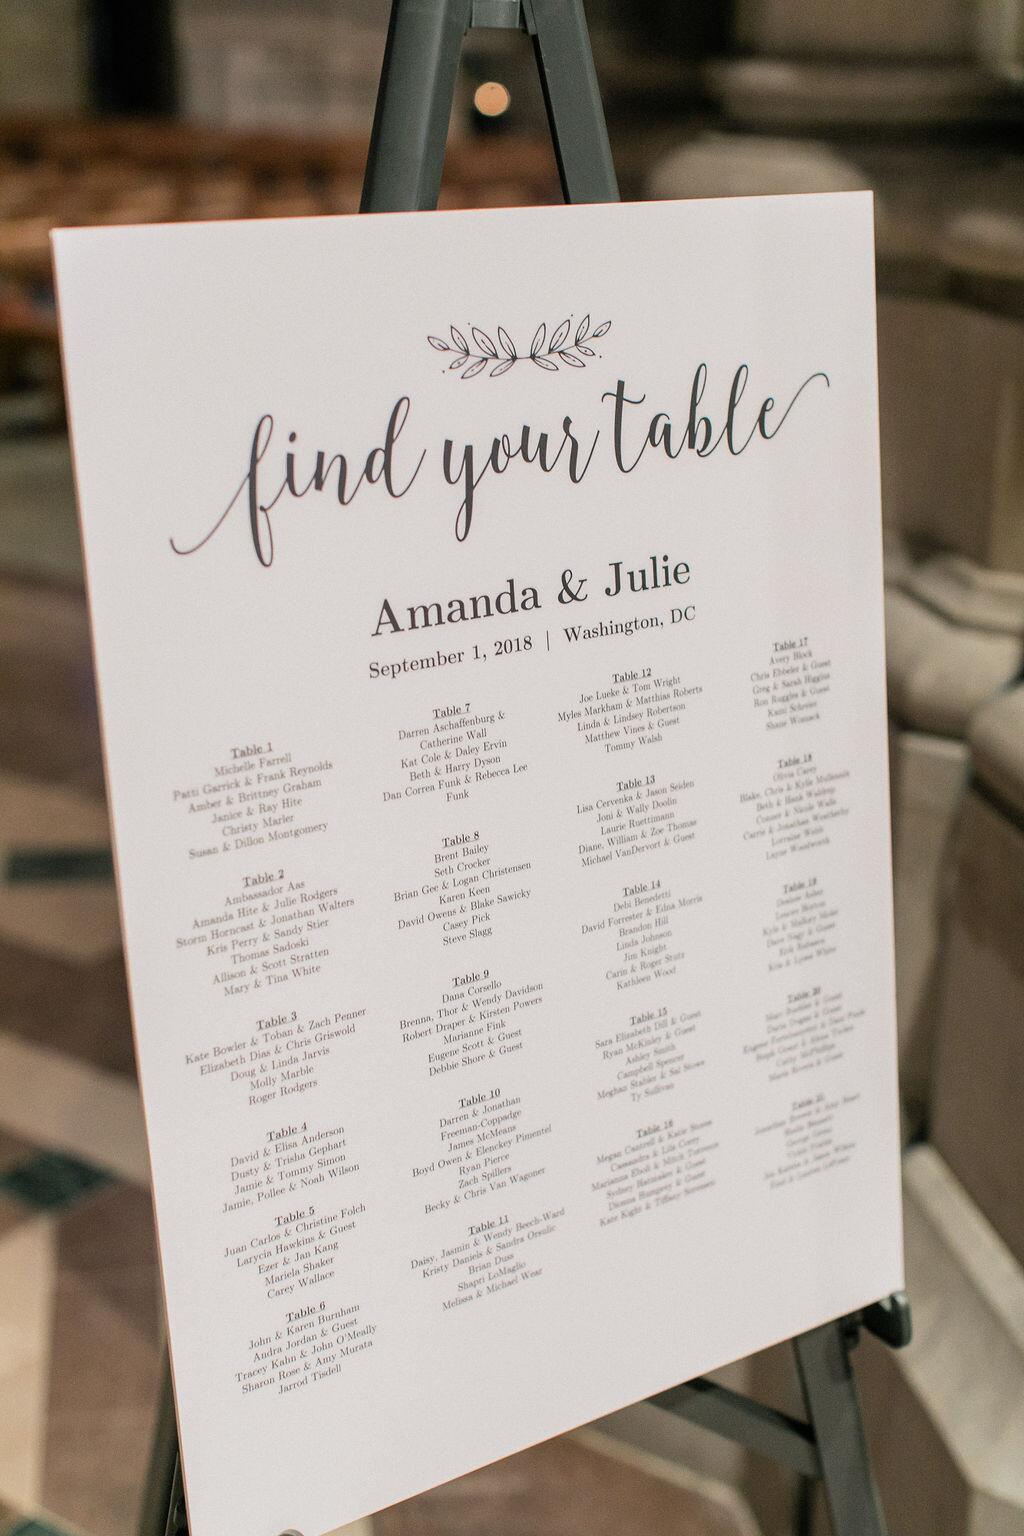 find your table
Amanda & Julie
September 1, 2018 | Washington, DC
Table 1
Michelle Farrell
Patti Garrick & Frank Reynolds
Amber & Brittney Graham
Janice & Ray Hite
Christy Marler
Susan & Dillon Montgomery
Table 2
Ambassador Aas
Amanda Hite & Julie Rodgers
Storm Horncast & Jonathan Walters
Kris Perry & Sandy Stier
Thomas Sadoski
Allison & Scott Stratten
Mary & Tina White
Table 3
Kate Bowler & Toban & Zach Penner
Elizabeth Dias & Chris Griswold
Doug & Linda Jarvis
Molly Marble
Roger Rodgers
Table 4
David & Elisa Anderson
Dusty & Trisha Gephart
Jamie & Tommy Simon
Jamie, Pollee & Noah Wilson
Table 5
Juan Carlos & Christine Folch
Larycia Hawkins & Guest
Ezer & Jan Kang
Mariela Shaker
Carey Wallace
Table 6
John & Karen Burnham
Audra Jordan & Guest
Tracey Kahn & John O'Meally
Sharon Rose & Amy Murata
Jarrod Tisdell
Table 7
Darren Aschaffenburg &
Catherine Wall
Kat Cole & Daley Ervin
Beth & Harry Dyson
Dan Correa Funk & Rebecca Lee
Funk
Table 8
Brent Bailey
Seth Crocker
Brian Gee & Logan Christensen
Karen Keen
David Owens & Blake Sawicky
Casey Pick
Steve Slagg
Table 9
Dana Corsello
Brenna, Thor & Wendy Davidson
Robert Draper & Kirsten Powers
Marianne Fink
Eugene Scott & Guest
Debbie Shore & Guest
Table 10
Darren & Jonathan
Freeman-Coppadge
James McMeans
Boyd Owen & Elenckey Pimentel
Ryan Pierce
Zach Spillers
Becky & Chris Van Wagoner
Table 11
Daisy, Jasmin & Wendy Beech-Ward
Kristy Daniels & Sandra Orsulic
Brian Duss
Shapri LoMaglio
Melissa & Michael Wear
Table 12
Joe Lueke & Tom Wright
Myles Markham & Matthias Roberts
Linda & Lindsey Robertson
Matthew Vines & Guest
Tommy Walsh
Table 13
Lisa Cervenka & Jason Seiden
Joni & Wally Doolin
Laurie Ruettimann
Diane, William & Zoe Thomas
Michael VanDervort & Guest
Table 14
Debi Benedetti
David Forrester & Edna Morris
Brandon Hill
Linda Johnson
Jim Knight
Carin & Roger Stutz
Kathleen Wood
Table 15
Sara Elizabeth Dill & Guest
Ryan McKinley & Guest
Ashley Smith
Campbell Spencer
Meghan Stabler & Sal Stowe
Ty Sullivan
Table 16
Megan Cantrell & Katie Stone
Cassandra & Lila Corey
Marianna Eboli & Mitch
Sydney & Guest
Dionna Humphrey & Guest
Kate Kight & Tiffany Sorensen
Table 17
Avery Block
Chris Ebbeler & Guest
Greg & Sarah Higgins
Ron Ruggles & Guest
Kami Schreier
Shane Womack
Table 18
Olivia Carey
Blake, Chris & Kyle
Beth & Hank
Conner & Nicole Walls
Carrie & Jonathan Weatherby
Lorraine Webb
Layne Woodworth
Table 19
Table 20